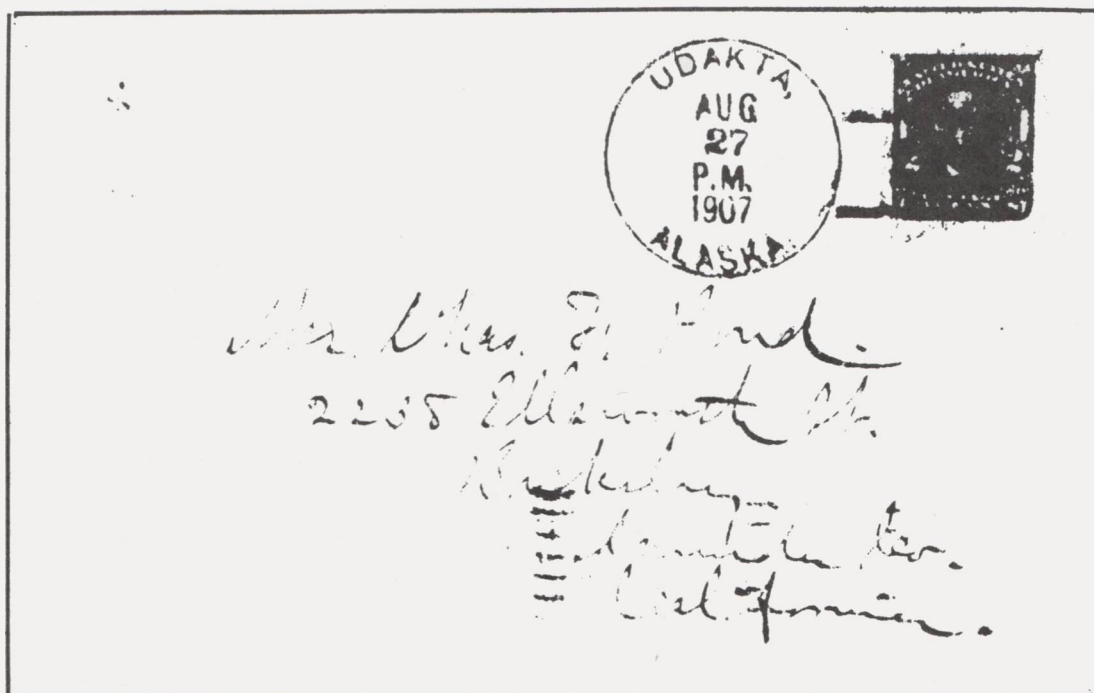 UDAKTA,
AUG
27
P.M.
1907
ALASKA.
Mr. Chas. F.
Ellsworth St.
Berkeley
Alameda Co.
California.